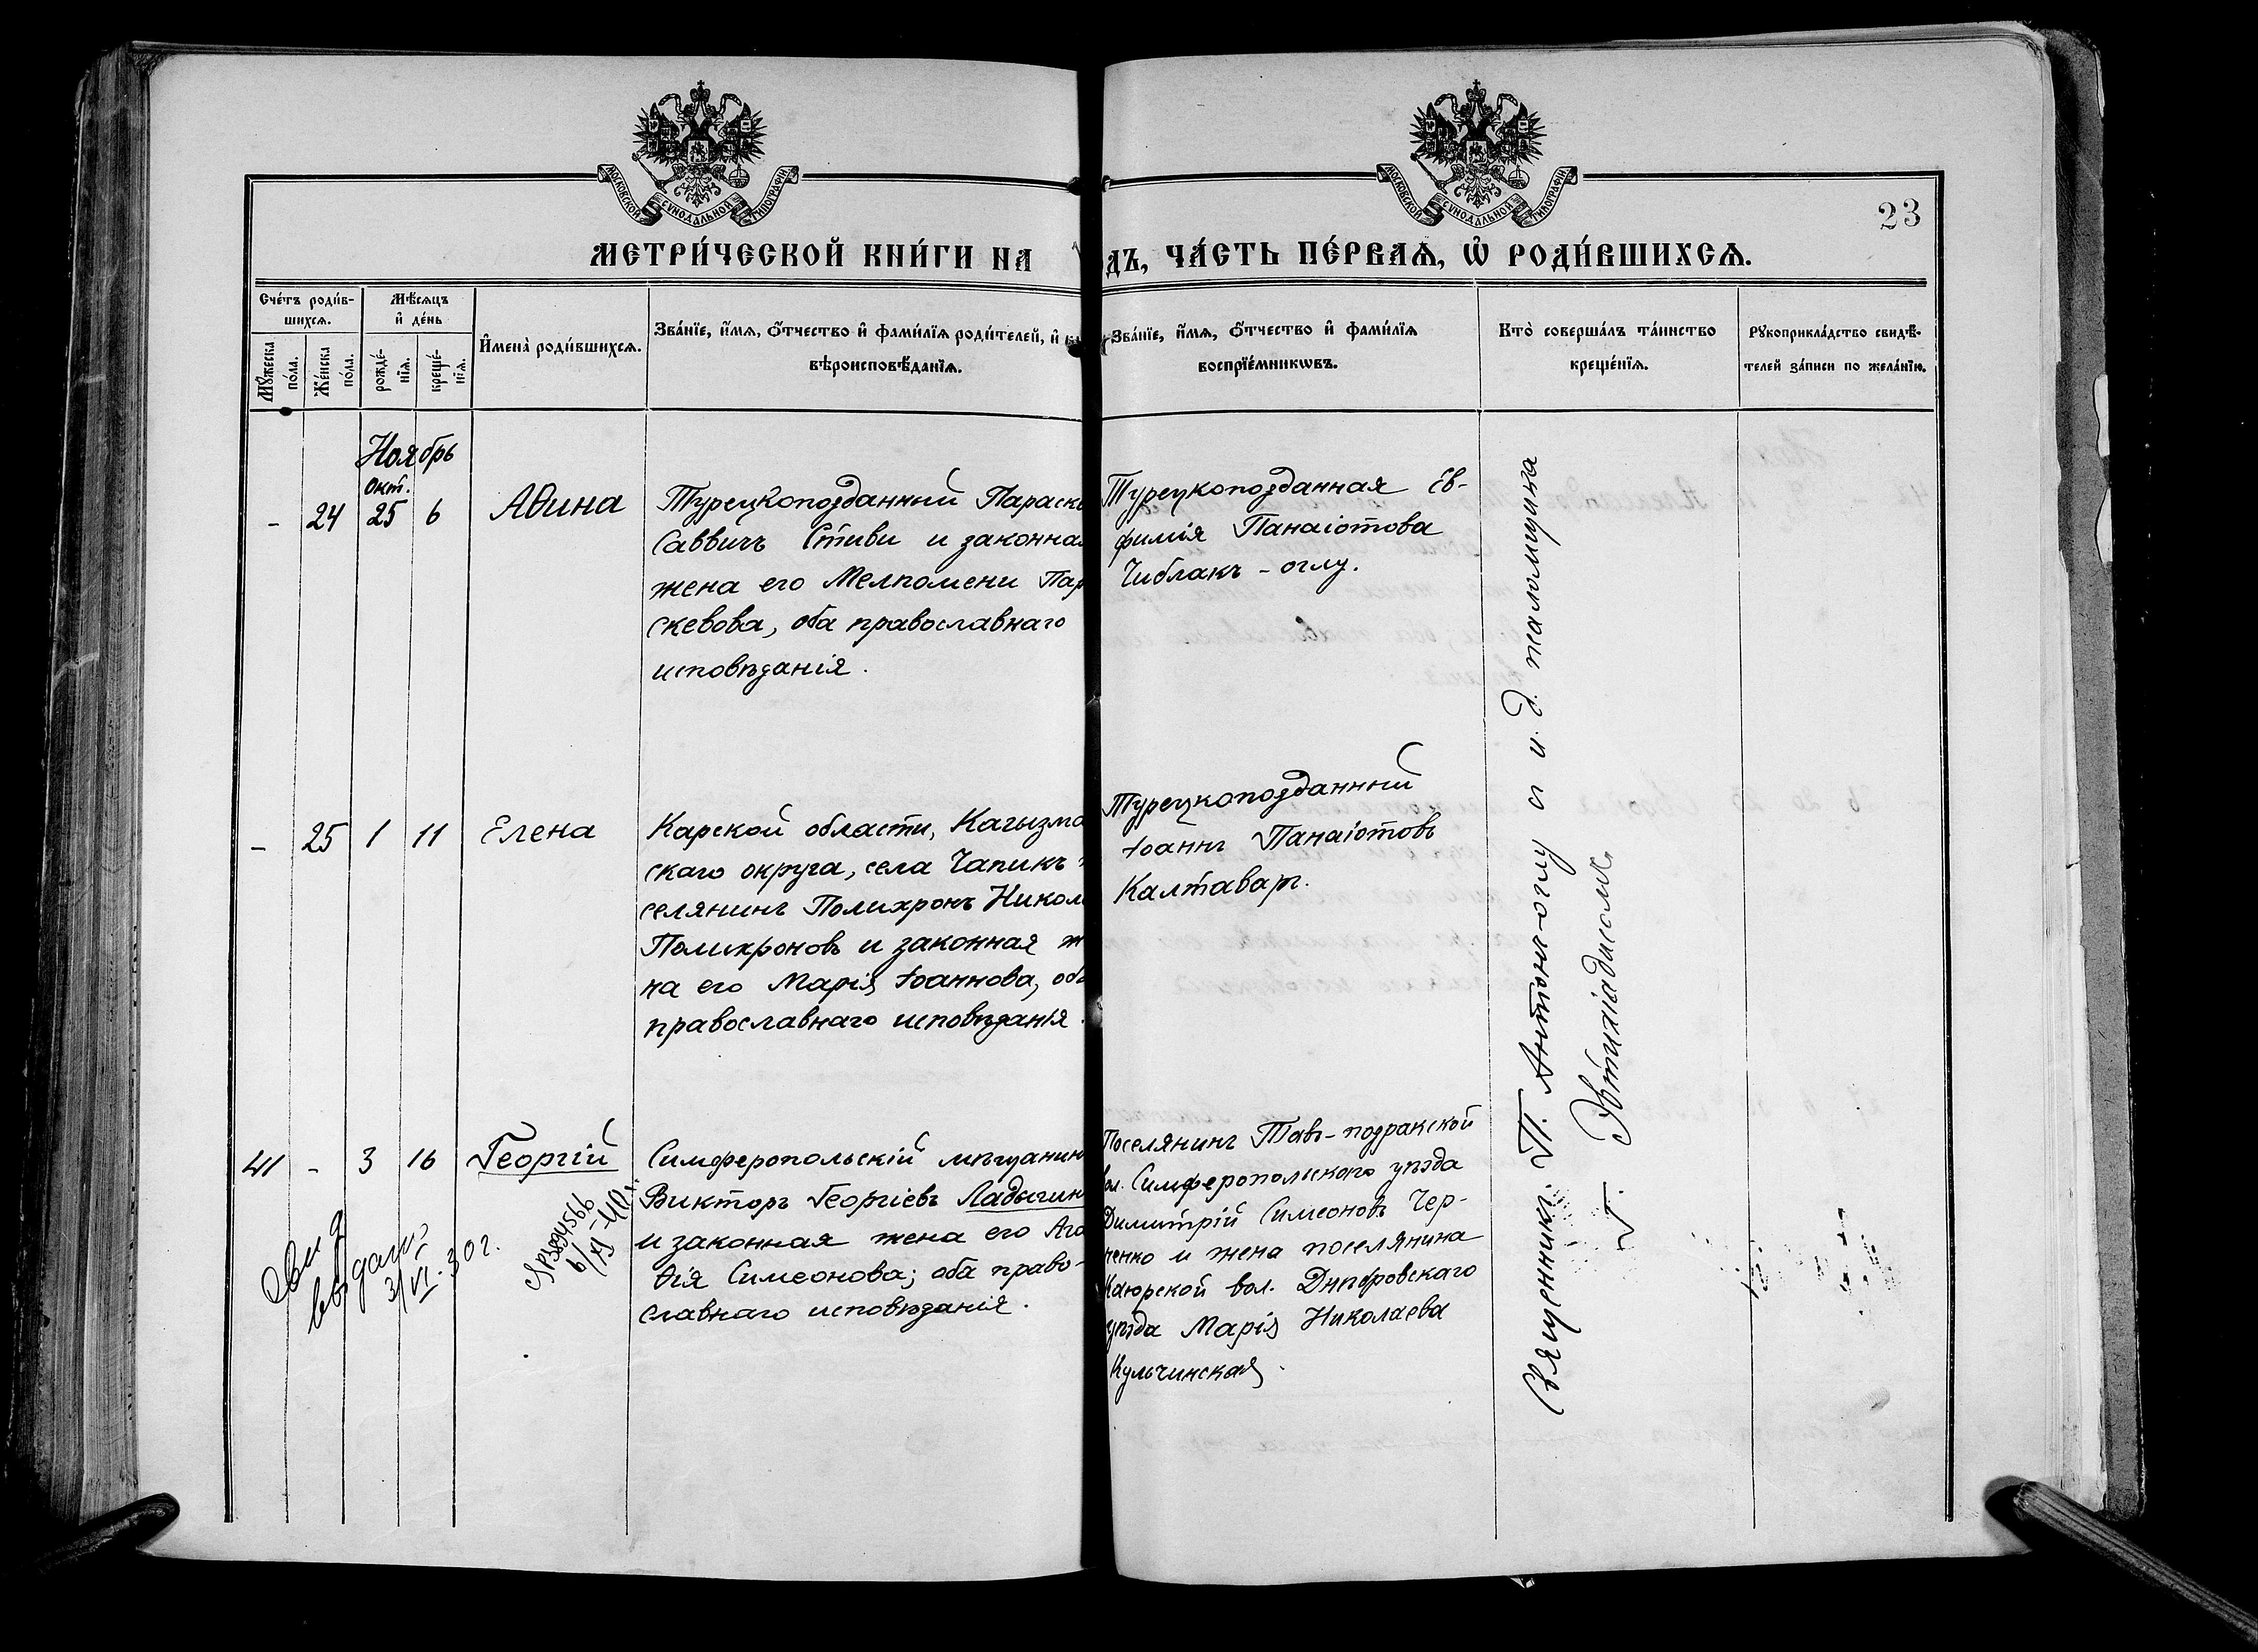 МОСКОВСКОЙ СѴНОДАЛЬНОЙ ТИПОГРАФІИ
МОСКОВСКОЙ СѴНОДАЛЬНОЙ ТИПОГРАФІИ
23
МЕТРИ́ЧЕСКОЙ КНИ́ГИ НА
ДЪ, ЧА́СТЬ ПЕ́РВАѦ, Ѽ РОДИ́ВШИХСѦ.
Сче́тъ роди́в-
шихсѧ.
Мꙋ́жеска
по́ла.
Же́нска
по́ла.
Мѣ́сѧцъ
и҆ де́нь
рожде́-
нїѧ.
креще́-
нїѧ.
И҆мена̀ роди́вшихсѧ.
Зва́нїе, и҆́мѧ, ѻ҆́тчество и҆ фами́лїѧ роди́телей, и҆
вѣроисповѣ́данїѧ.
Зва́нїе, и҆́мѧ, ѻ҆́тчество и҆ фами́лїѧ
воспрїе́мникѡвъ.
Кто̀ соверша́лъ та́инство
креще́нїѧ.
Рꙋкоприкла́дство свидѣ́-
телей за́писи по жела́нїю.
Ноябрь
Окт.
- 24 25 6 Аѳина
Турецкоподданный Параске
Саввичъ Стиви и законная
жена его Мелпомени Пар
скевова, оба православнаго
исповѣданія.
Турецкоподданная Ев-
фимія Панаіотова
Чиблакъ-оглу.
- 25 1 11 Елена
Карской области, Кагызма
скаго округа, села Чапикъ
селянинъ Полихронъ Никол
Полихроновъ и законная ж
на его Марія Іоаннова, оба
православнаго исповѣданія.
Турецкоподданный
Іоаннъ Панаіотовъ
Калтавар.
41 - 3 16 Георгій
Симферопольскій мѣщанин
Викторъ Георгіевъ Ладыгин
и законная жена его Ага
ѳія Симеонова; оба право-
славнаго исповѣданія.
Поселянинъ Тавъ-подракской
вол. Симферопольскаго уѣзда
Димитрій Симеоновъ Чер-
ненко и жена поселянина
Каюрской вол. Днѣпровскаго
уѣзда Марія Николаева
Кульчинская.
выдано
3/VI-30г.
6/XI-40г.
Священникъ П. Антонъ-оглу и и. д. псаломщика